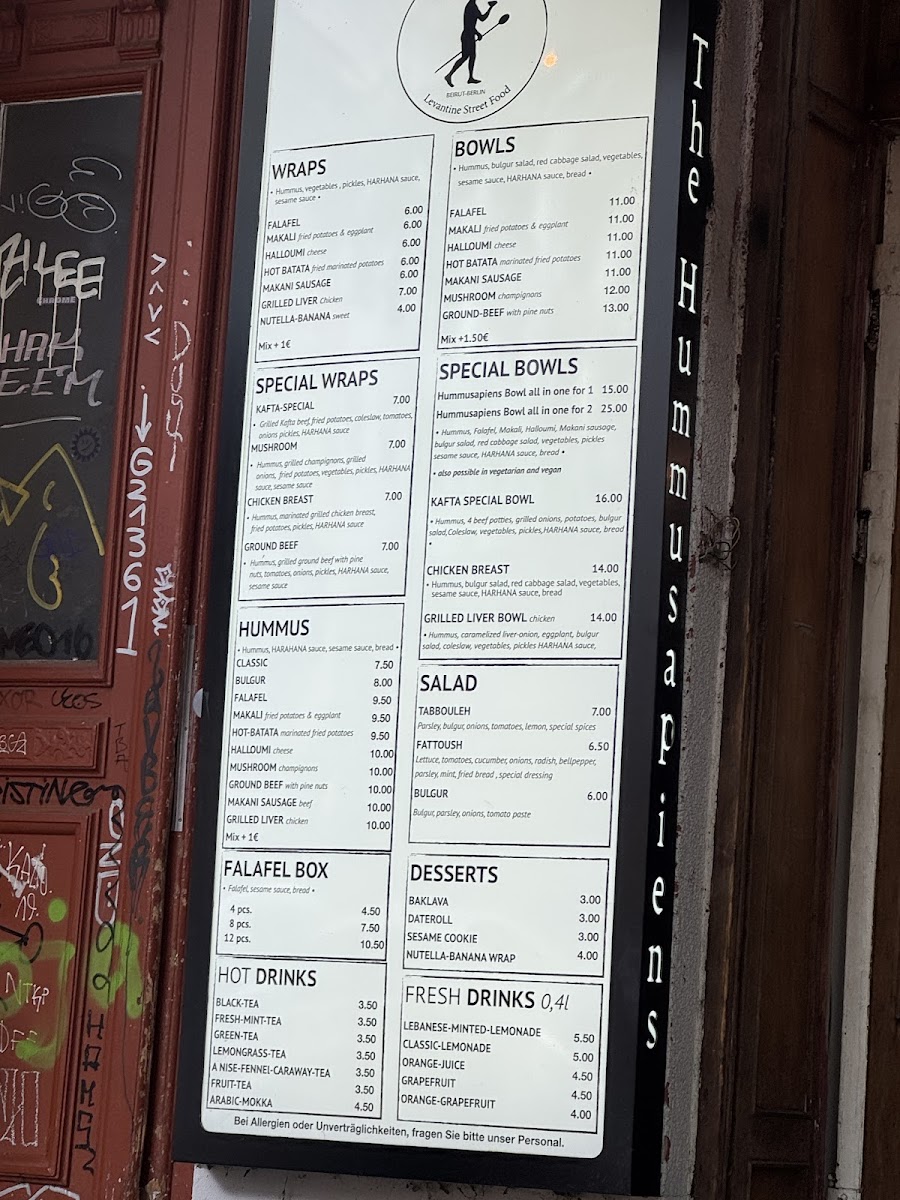 BEIRUT-BERLIN
Levantine Street Food
The Hummusapiens
WRAPS
• Hummus, vegetables , pickles, HARHANA sauce,
sesame sauce •
FALAFEL 6.00
MAKALI fried potatoes & eggplant 6.00
HALLOUMI cheese 6.00
HOT BATATA fried marinated potatoes 6.00
MAKANI SAUSAGE 6.00
GRILLED LIVER Chicken 7.00
NUTELLA-BANANA sweet 4.00
Mix + 1€
SPECIAL WRAPS
KAFTA-SPECIAL 7.00
• Grilled Kafta beef, fried potatoes, coleslaw, tomatoes,
onions pickles, HARHANA sauce
MUSHROOM 7.00
• Hummus, grilled champignons, grilled
onions, fried potatoes, vegetables, pickles, HARHANA
sauce, sesame sauce
CHICKEN BREAST 7.00
• Hummus, marinated grilled chicken breast,
fried potatoes, pickles, HARHANA sauce
GROUND BEEF 7.00
• Hummus, grilled ground beef with pine
nuts, tomatoes, onions, pickles, HARHANA sauce,
sesame sauce
HUMMUS
• Hummus, HARAHANA sauce, sesame sauce, bread •
CLASSIC 7.50
BULGUR 8.00
FALAFEL 9.50
MAKALI fried potatoes & eggplant 9.50
HOT-BATATA marinated fried potatoes 9.50
HALLOUMI cheese 10.00
MUSHROOM champignons 10.00
GROUND BEEF with pine nuts 10.00
MAKANI SAUSAGE beef 10.00
GRILLED LIVER chicken 10.00
Mix + 1€
FALAFEL BOX
• Falafel, sesame sauce, bread •
4 pcs. 4.50
8 pcs. 7.50
12 pcs. 10.50
HOT DRINKS
BLACK-TEA 3.50
FRESH-MINT-TEA 3.50
GREEN-TEA 3.50
LEMONGRASS-TEA 3.50
A NISE-FENNEL-CARAWAY-TEA 3.50
FRUIT-TEA 3.50
ARABIC-MOKKA 4.50
BOWLS
• Hummus, bulgur salad, red cabbage salad, vegetables,
sesame sauce, HARHANA sauce, bread •
FALAFEL 11.00
MAKALI fried potatoes & eggplant 11.00
HALLOUMI cheese 11.00
HOT BATATA marinated fried potatoes 11.00
MAKANI SAUSAGE 11.00
MUSHROOM champignons 12.00
GROUND-BEEF with pine nuts 13.00
Mix +1.50€
SPECIAL BOWLS
Hummusapiens Bowl all in one for 1 15.00
Hummusapiens Bowl all in one for 2 25.00
• Hummus, Falafel, Makali, Halloumi, Makani sausage,
bulgur salad, red cabbage salad, vegetables, pickles
sesame sauce, HARHANA sauce, bread •
• also possible in vegetarian and vegan
KAFTA SPECIAL BOWL 16.00
• Hummus, 4 beef patties, grilled onions, potatoes, bulgur
salad,Coleslaw, vegetables, pickles,HARHANA sauce, bread
•
CHICKEN BREAST 14.00
• Hummus, bulgur salad, red cabbage salad, vegetables,
sesame sauce, HARHANA sauce, bread
GRILLED LIVER BOWL chicken 14.00
• Hummus, caramelized liver-onion, eggplant, bulgur
salad, coleslaw, vegetables, pickles HARHANA sauce,
SALAD
TABBOULEH 7.00
Parsley, bulgur, onions, tomatoes, lemon, special spices
FATTOUSH 6.50
Lettuce, tomatoes, cucumber, onions, radish, bellpepper,
parsley, mint, fried bread , special dressing
BULGUR 6.00
Bulgur, parsley, onions, tomato paste
DESSERTS
BAKLAVA 3.00
DATEROLL 3.00
SESAME COOKIE 3.00
NUTELLA-BANANA WRAP 4.00
FRESH DRINKS 0,4l
LEBANESE-MINTED-LEMONADE 5.50
CLASSIC-LEMONADE 5.00
ORANGE-JUICE 4.50
GRAPEFRUIT 4.50
ORANGE-GRAPEFRUIT 4.00
Bei Allergien oder Unverträglichkeiten, fragen Sie bitte unser Personal.